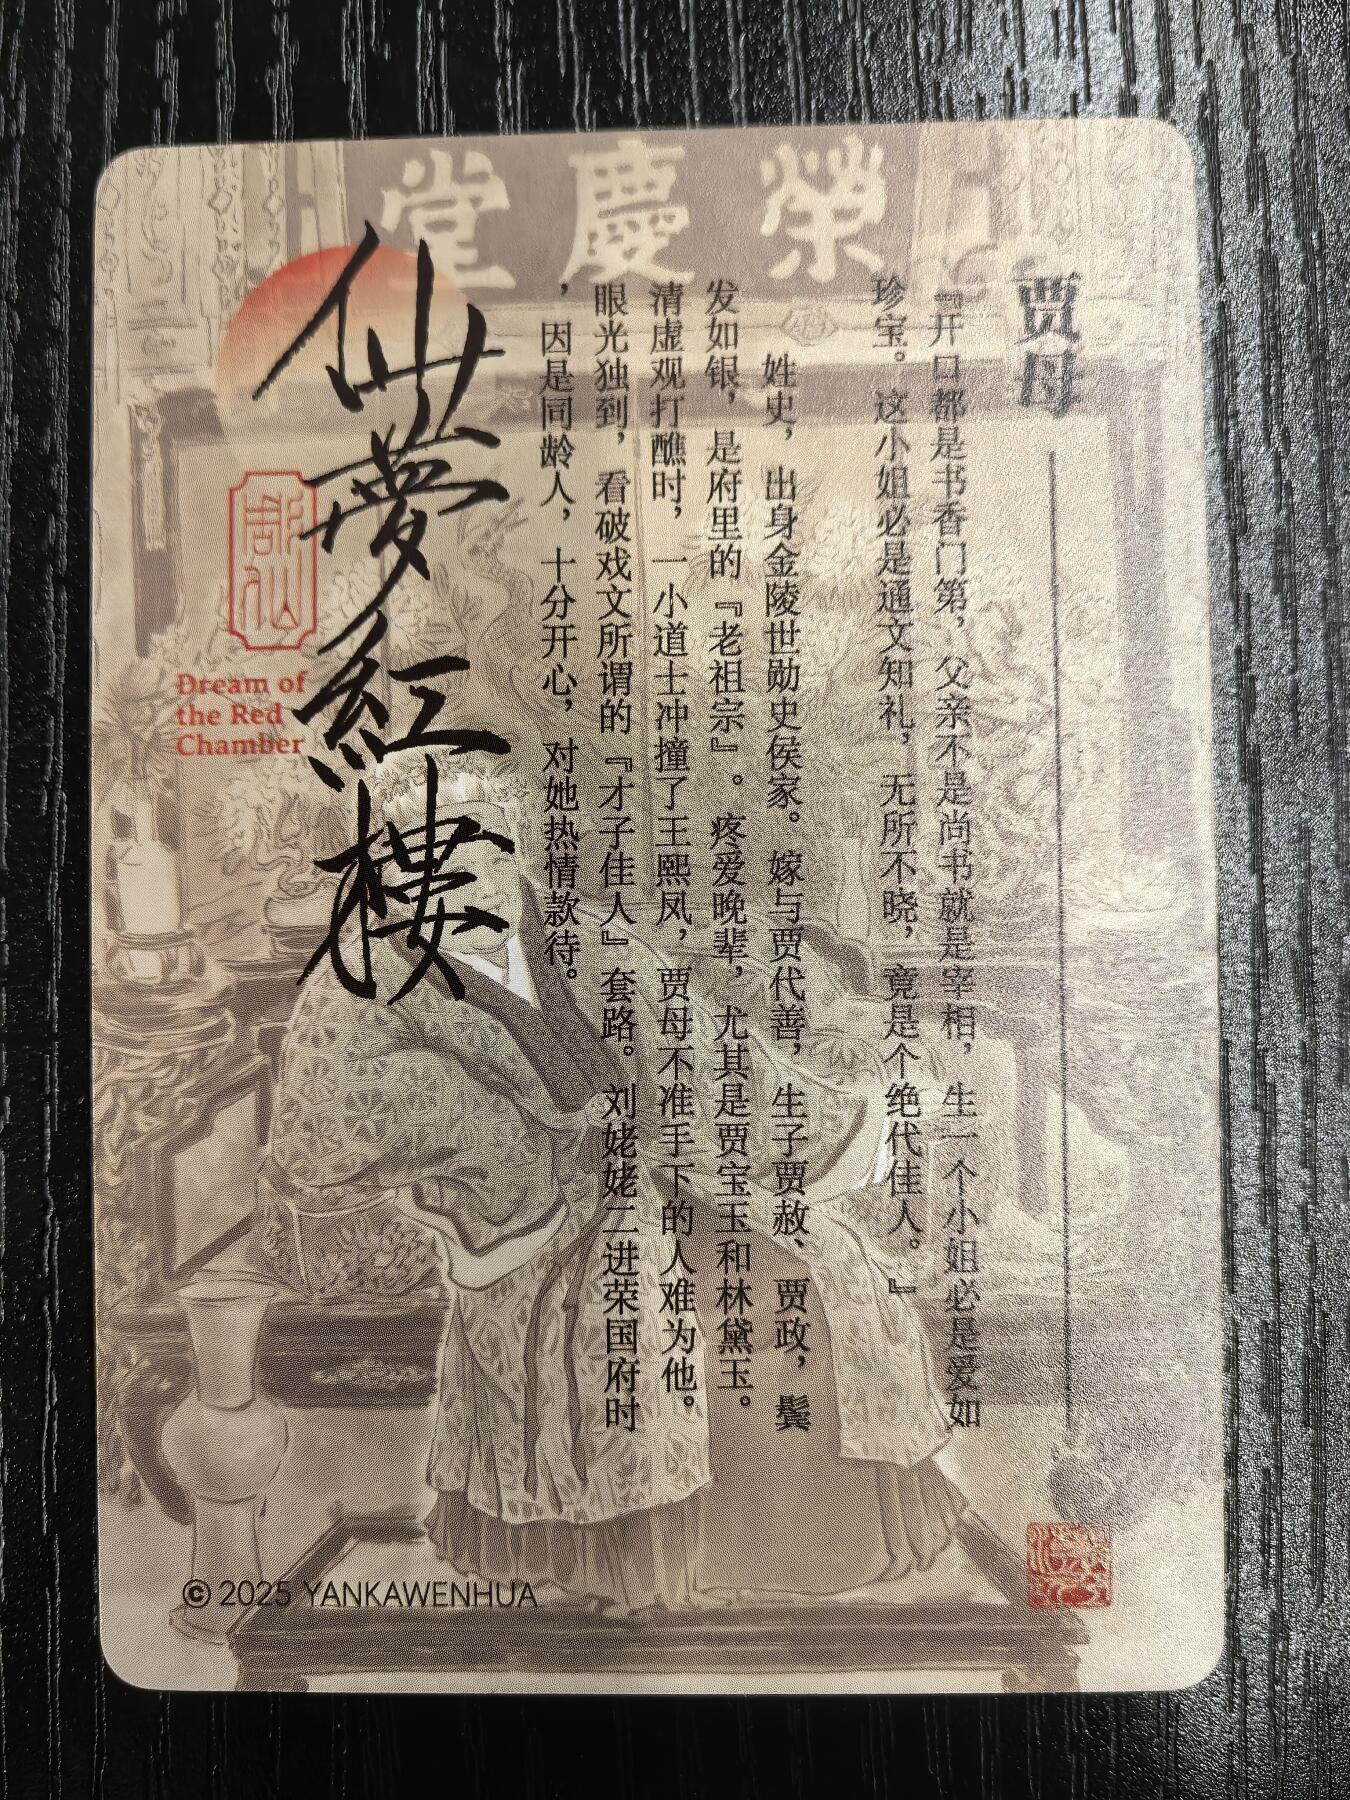 榮慶堂
贾母
『开口都是书香门第，父亲不是尚书就是宰相，生一个小姐必是爱如
珍宝。这小姐必是通文知礼，无所不晓，竟是个绝代佳人。』
姓史，出身金陵世勋史侯家。嫁与贾代善，生子贾赦、贾政，鬓
发如银，是府里的『老祖宗』。疼爱晚辈，尤其是贾宝玉和林黛玉。
清虚观打醮时，一小道士冲撞了王熙凤，贾母不准手下的人难为他。
眼光独到，看破戏文所谓的『才子佳人』套路。刘姥姥二进荣国府时
，因是同龄人，十分开心，对她热情款待。
仙夢紅樓
Dream of
the Red
Chamber
© 2025 YANKAWENHUA